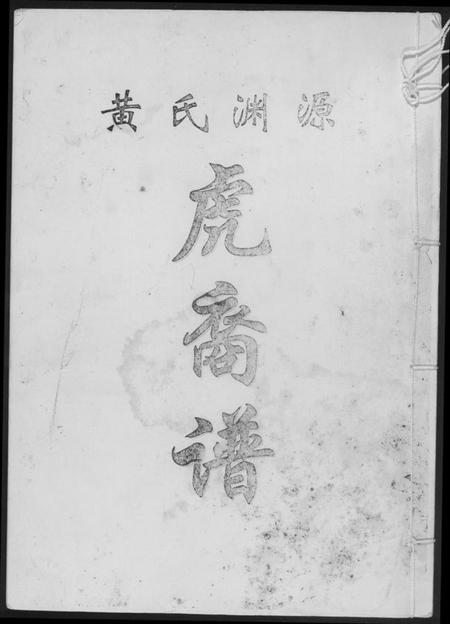 黄氏渊源
虎裔谱